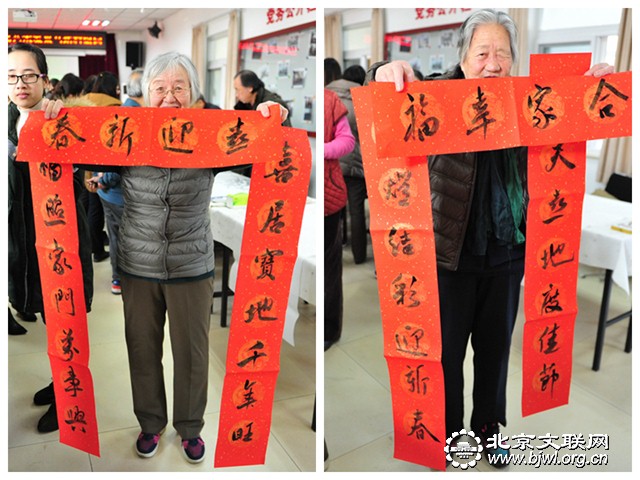 喜迎新春
喜居寶地千年旺
福照家門萬事興
合家幸福
天喜地度佳節
燈結彩迎新春
党务公开
北京文联网
www.bjwl.org.cn